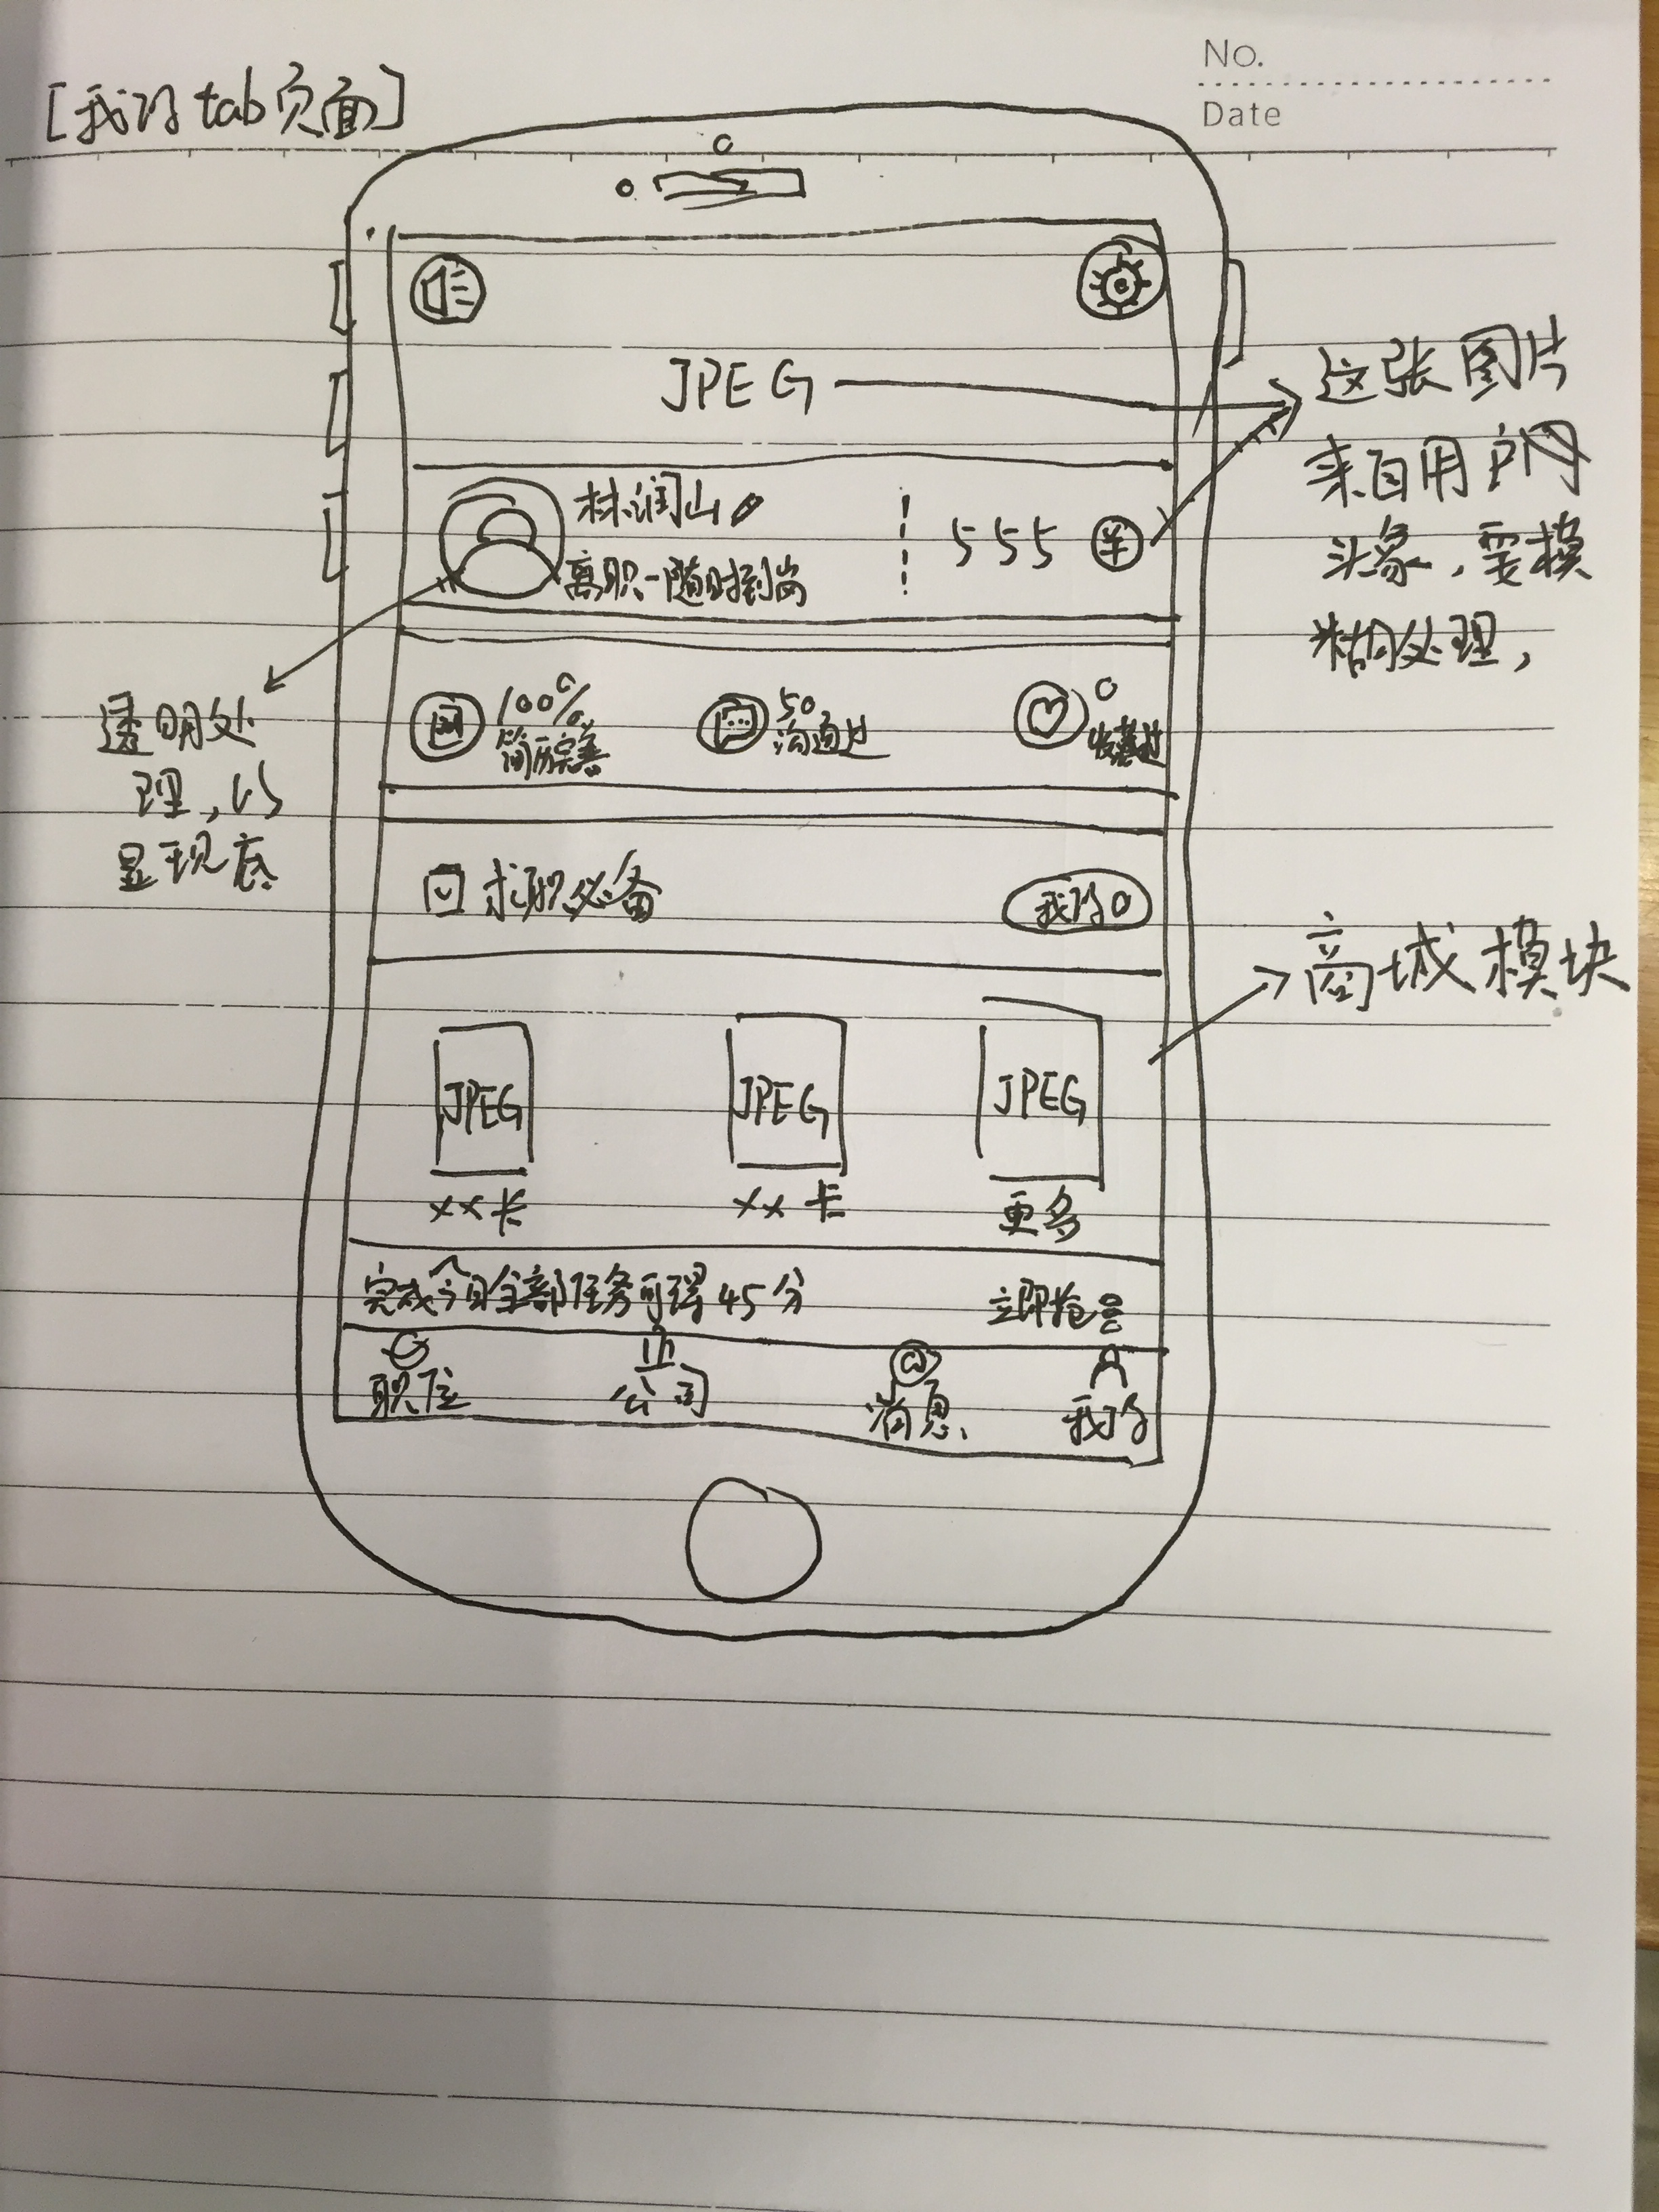 No.
Date
[我的tab页面]
JPEG
这张图片
来自用户
头象，需模
糊处理，
林润山
555
离职-随时到岗
透明处
理，以
显现底
100%
简历完善
50
沟通过
0
收藏过
求职必备
我的0
商城模块
JPEG
JPEG
JPEG
xx卡
xx卡
更多
完成今日全部任务可得45分
职位
公司
消息
我的